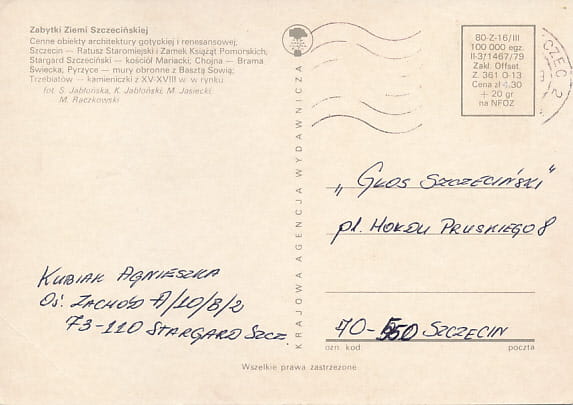 Zabytki Ziemi Szczecińskiej
Cenne obiekty architektury gotyckiej i renesansowej.
Szczecin — Ratusz Staromiejski i Zamek Książąt Pomorskich,
Stargard Szczeciński — kościół Mariacki, Chojna — Brama
Świecka, Pyrzyce — mury obronne z Basztą Sowią;
Trzebiatów — kamieniczki z XV-XVIII w. w rynku
fot. S. Jabłońska, K. Jabłoński, M. Jasiecki,
M. Raczkowski
KRAJOWA AGENCJA WYDAWNICZA
80-Z-16/III
100 000 egz.
II-3/1467/79
Zakl. Offset.
Z. 361 O-13
Cena zł 1.30
+ 20 gr
na NFOZ
„Głos Szczeciński"
pl. Hołdu Pruskiego 8
70-550 Szczecin
ozn. kod
poczta
Kubiak Agnieszka
Oś. Zachód A/10/8/2
73-110 Stargard Szcz.
Wszelkie prawa zastrzeżone